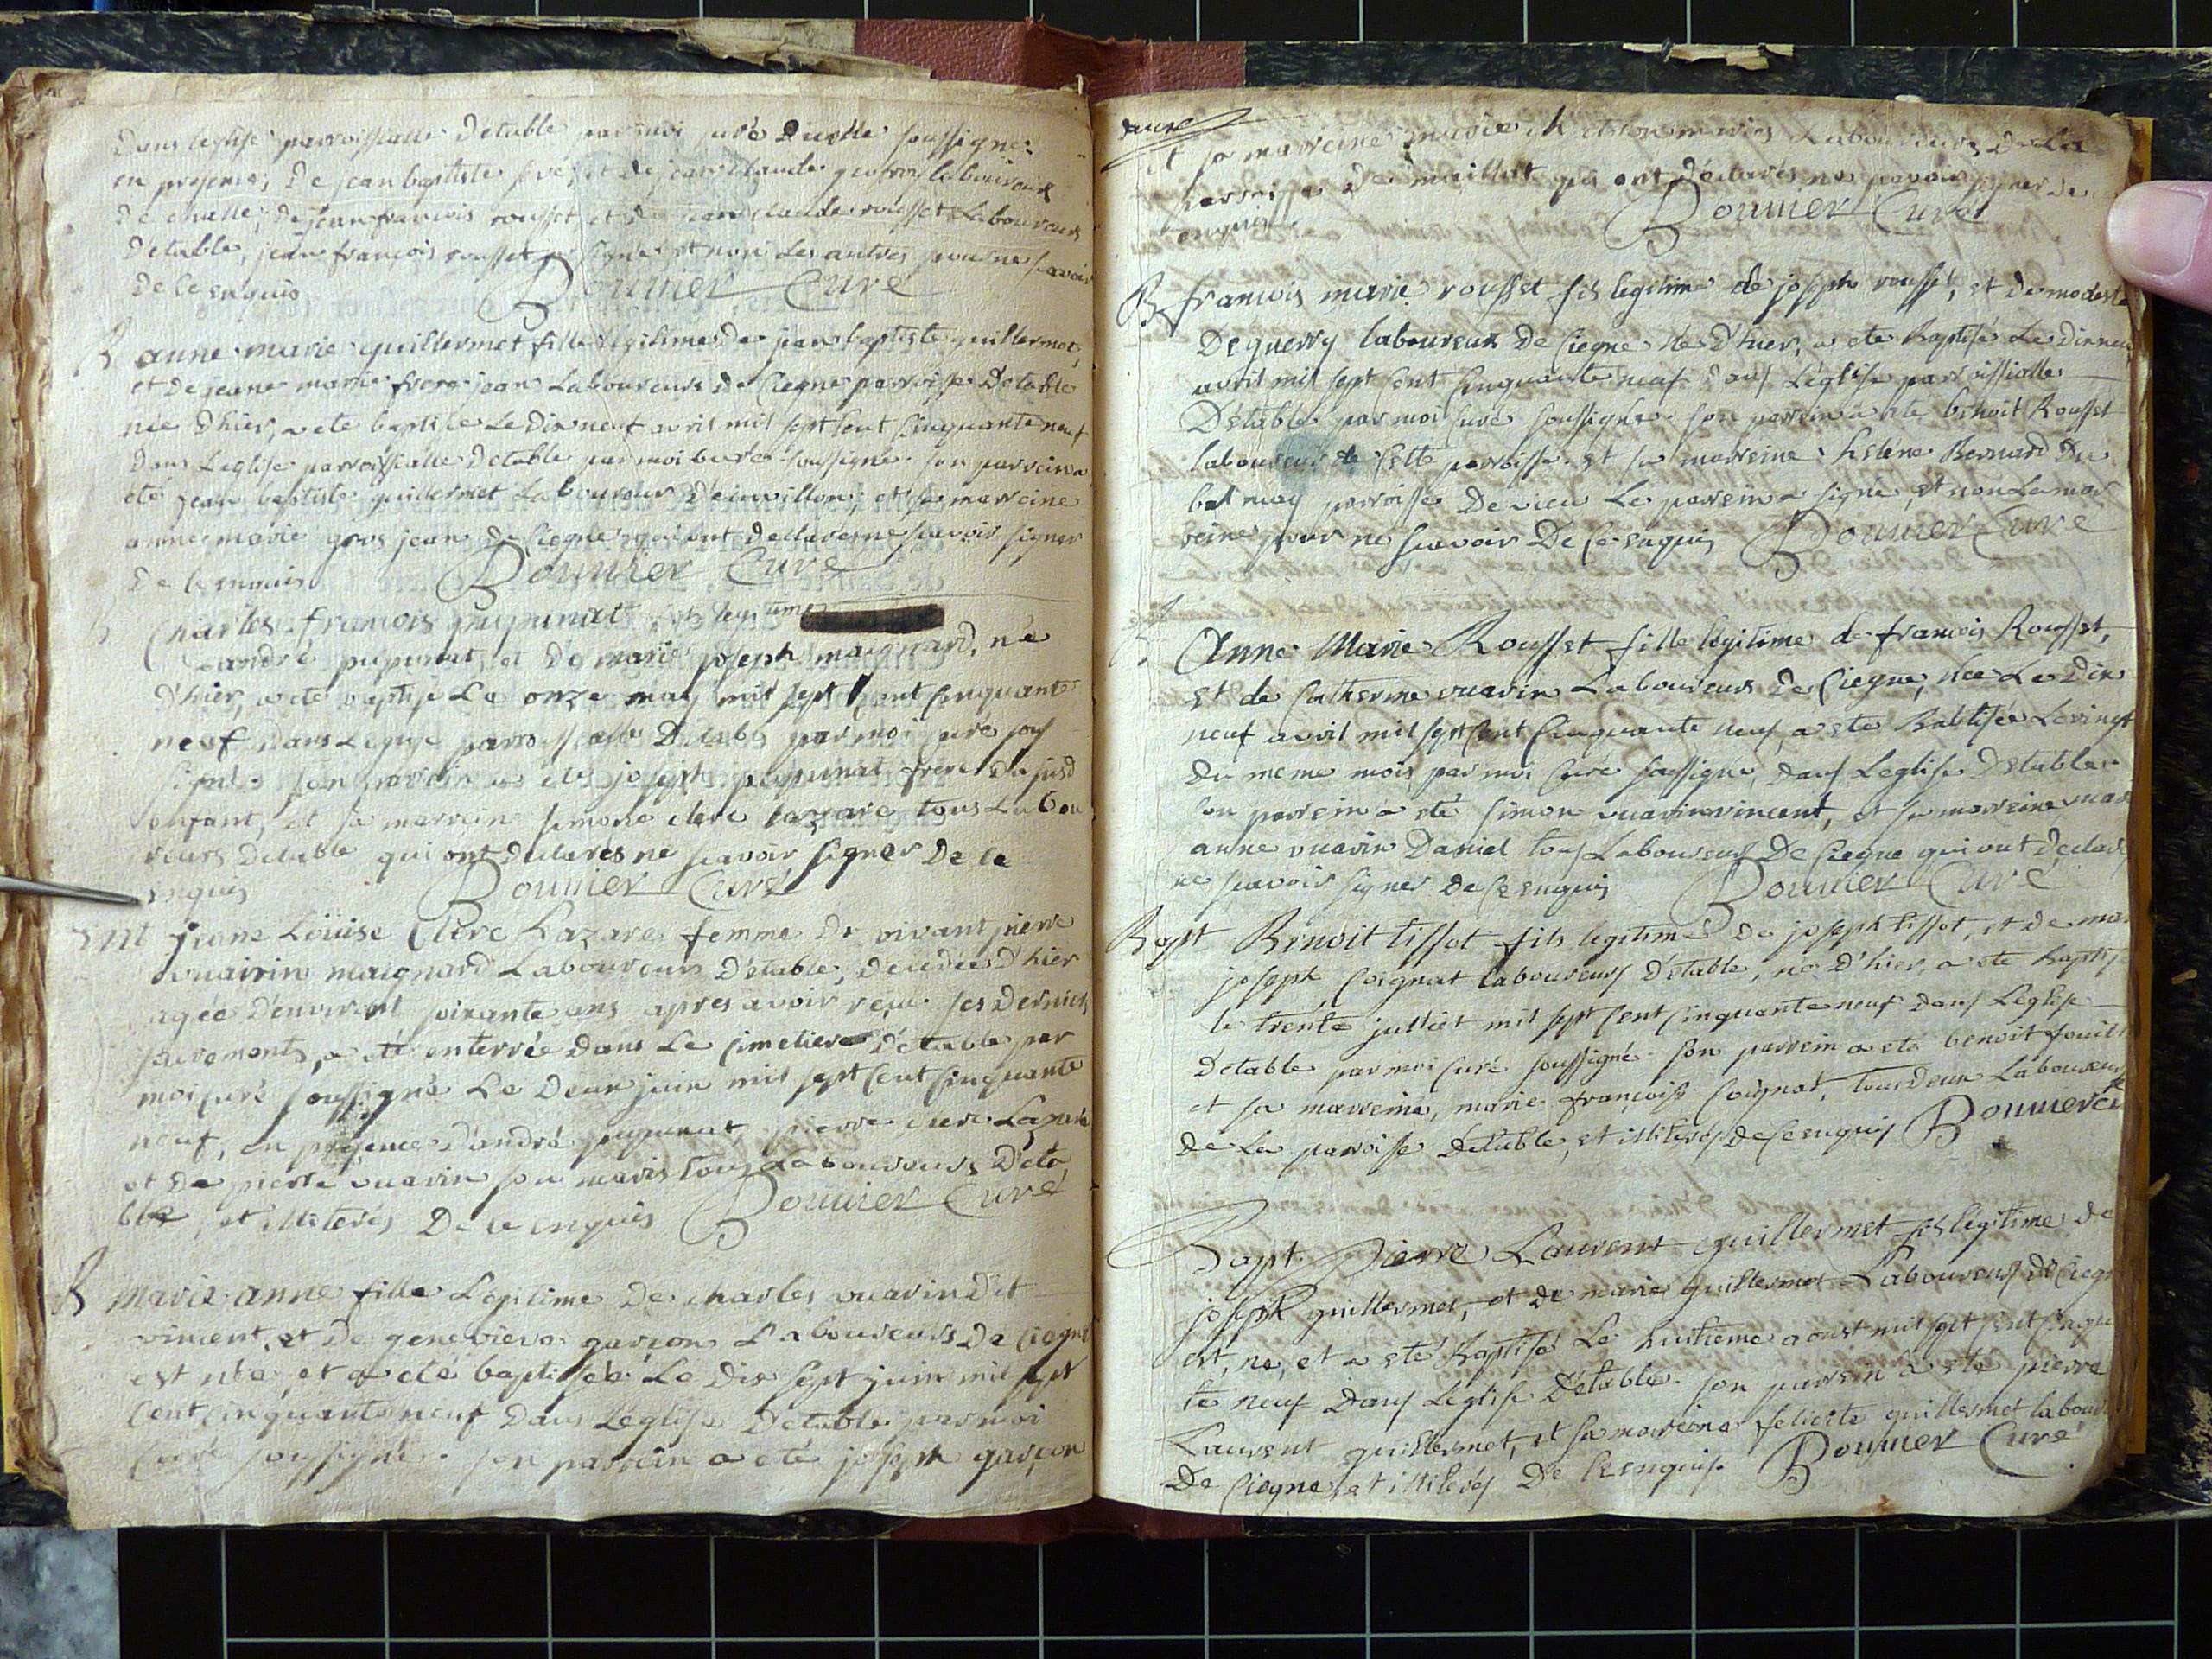 Dans leglise parroissialle Détable par moi curé Dudit soussigné
en presence, De jean baptiste et de jean claude laboureurs
De challe, De jean francois rousset et De jean claude rousset Laboureurs
Détable, jean françois rousset a signé et non Les autres pour ne scavoir
De ce enquis Bounier Curé
B anne marie guillermet fille légitime De jean baptiste guillermet,
et De jeane marie frere jean Laboureurs De Ciegne parroisse Détable
née D'hier, a ete baptisée Le Dix neuf avril mil sept cent cinquante neuf
Dans Leglise parroissialle Détable par moi curé soussigné. son parrein a
été jean baptiste guillermet Laboureur et sa marreine
anne marie gros jean De Ciegne qui ont declaré ne scavoir signer
De ce enquis Bounier Curé
B Charles francois pupunat fils legitime
andré pupunat, et De marie joseph maignard, né
D'hier, a eté baptisé Le onze may mil sept cent cinquante
neuf Dans Leglise parroissialle Détable par moi curé sous
signé. son parrein a eté joseph pupunat frere Du susd
enfant, et sa marrein simone clerc Lazare tous Labou
reurs Détable qui ont declarés ne scavoir signer De ce
enquis Bounier Curé
Ent jeane Loüise Clerc Lazare femme De vivant pierre
vuairin maignard Laboureurs D'étable, Décédée D'hier
agée D'environt soixante ans apres avoir reçu ses Derniers
sacrements, a été enterrée Dans Le Cimetiere D'étable par
moi curé soussigné Le Deux juin mil sept cent cinquante
neuf, en presence D'andré pupunat, pierre clerc Lazare
et De pierre vuarin son maris tous Laboureurs Déta
ble, et illiterés De ce enquis Bounier Curé
B Marie anne fille Légitime De charles vuarin Dit
vincent, et De genevieve garçon Laboureurs De Ciegne
est née, et a été baptisée Le Dix sept juin mil sept
Cent cinquante neuf Dans Léglise Détable par moi
Curé soussigné. son parrein a eté joseph garçon
et sa marreine marie maries Laboureurs De La
parroisse De maillat qui ont déclarés ne scavoir signer De
ce enquis. Bounier Curé
B francois marie rousset fils legitime de joseph rousset, et De modeste
Déguerry laboureurs De Ciegne né D'hier, a ete Baptisé Le Dix neuf
avril mil sept Cent Cinquante neuf Dans Léglise parroissialle
D'étable par moi curé soussigné. son parrein a ete benoit Rousset
laboureur de Cette parroisse. et sa marreine hélène Bernard Du
balmay parroisse De vieu Le parrein a signé, et non La mar
reine pour ne scavoir De Ce enquis Bounier Curé
B Anne Marie Rousset fille légitime de francois Rousset,
et de Catherine vuarin Laboureurs De Ciegne, née Le Dix
neuf avril mil sept Cent Cinquante neuf, a ete Babtisée Le vingt
Du meme mois par moi Curé soussigné, Dans Leglise Détable.
son parrein a eté simon vuarin vincent, et sa marreine
anne vuarin Daniel tous Laboureurs De Ciegne qui ont Declaré
ne scavoir signer De Ce enquis Bounier Curé
Bapt Benoit tissot fils legitime De joseph tissot, et De marie
joseph Coignat laboureurs D'étable, né D'hier, a ete baptisé
le trente juilliet mil sept Cent Cinquante neuf Dans Léglise
Détable par moi Curé soussigné. son parrein a eté benoit
et sa marreine, marie françoise Coignat, tous Deux Laboureurs
de La parroisse Détable, et illiterés De Ce enquis Bounier Cu
Bapt. Pierre Laurent guillermet fils légitime De
joseph guillermet, et De marie guillermet Laboureurs De Ciegne
est, né, et a eté Baptisé Le huitieme aoust mil sept cent
te neuf Dans Léglise D'étable. son parrein a eté pierre
Laurent guillermet, et sa marreine felicité guillermet
De Ciegne, et illiterés De Ce enquis. Bounier Curé